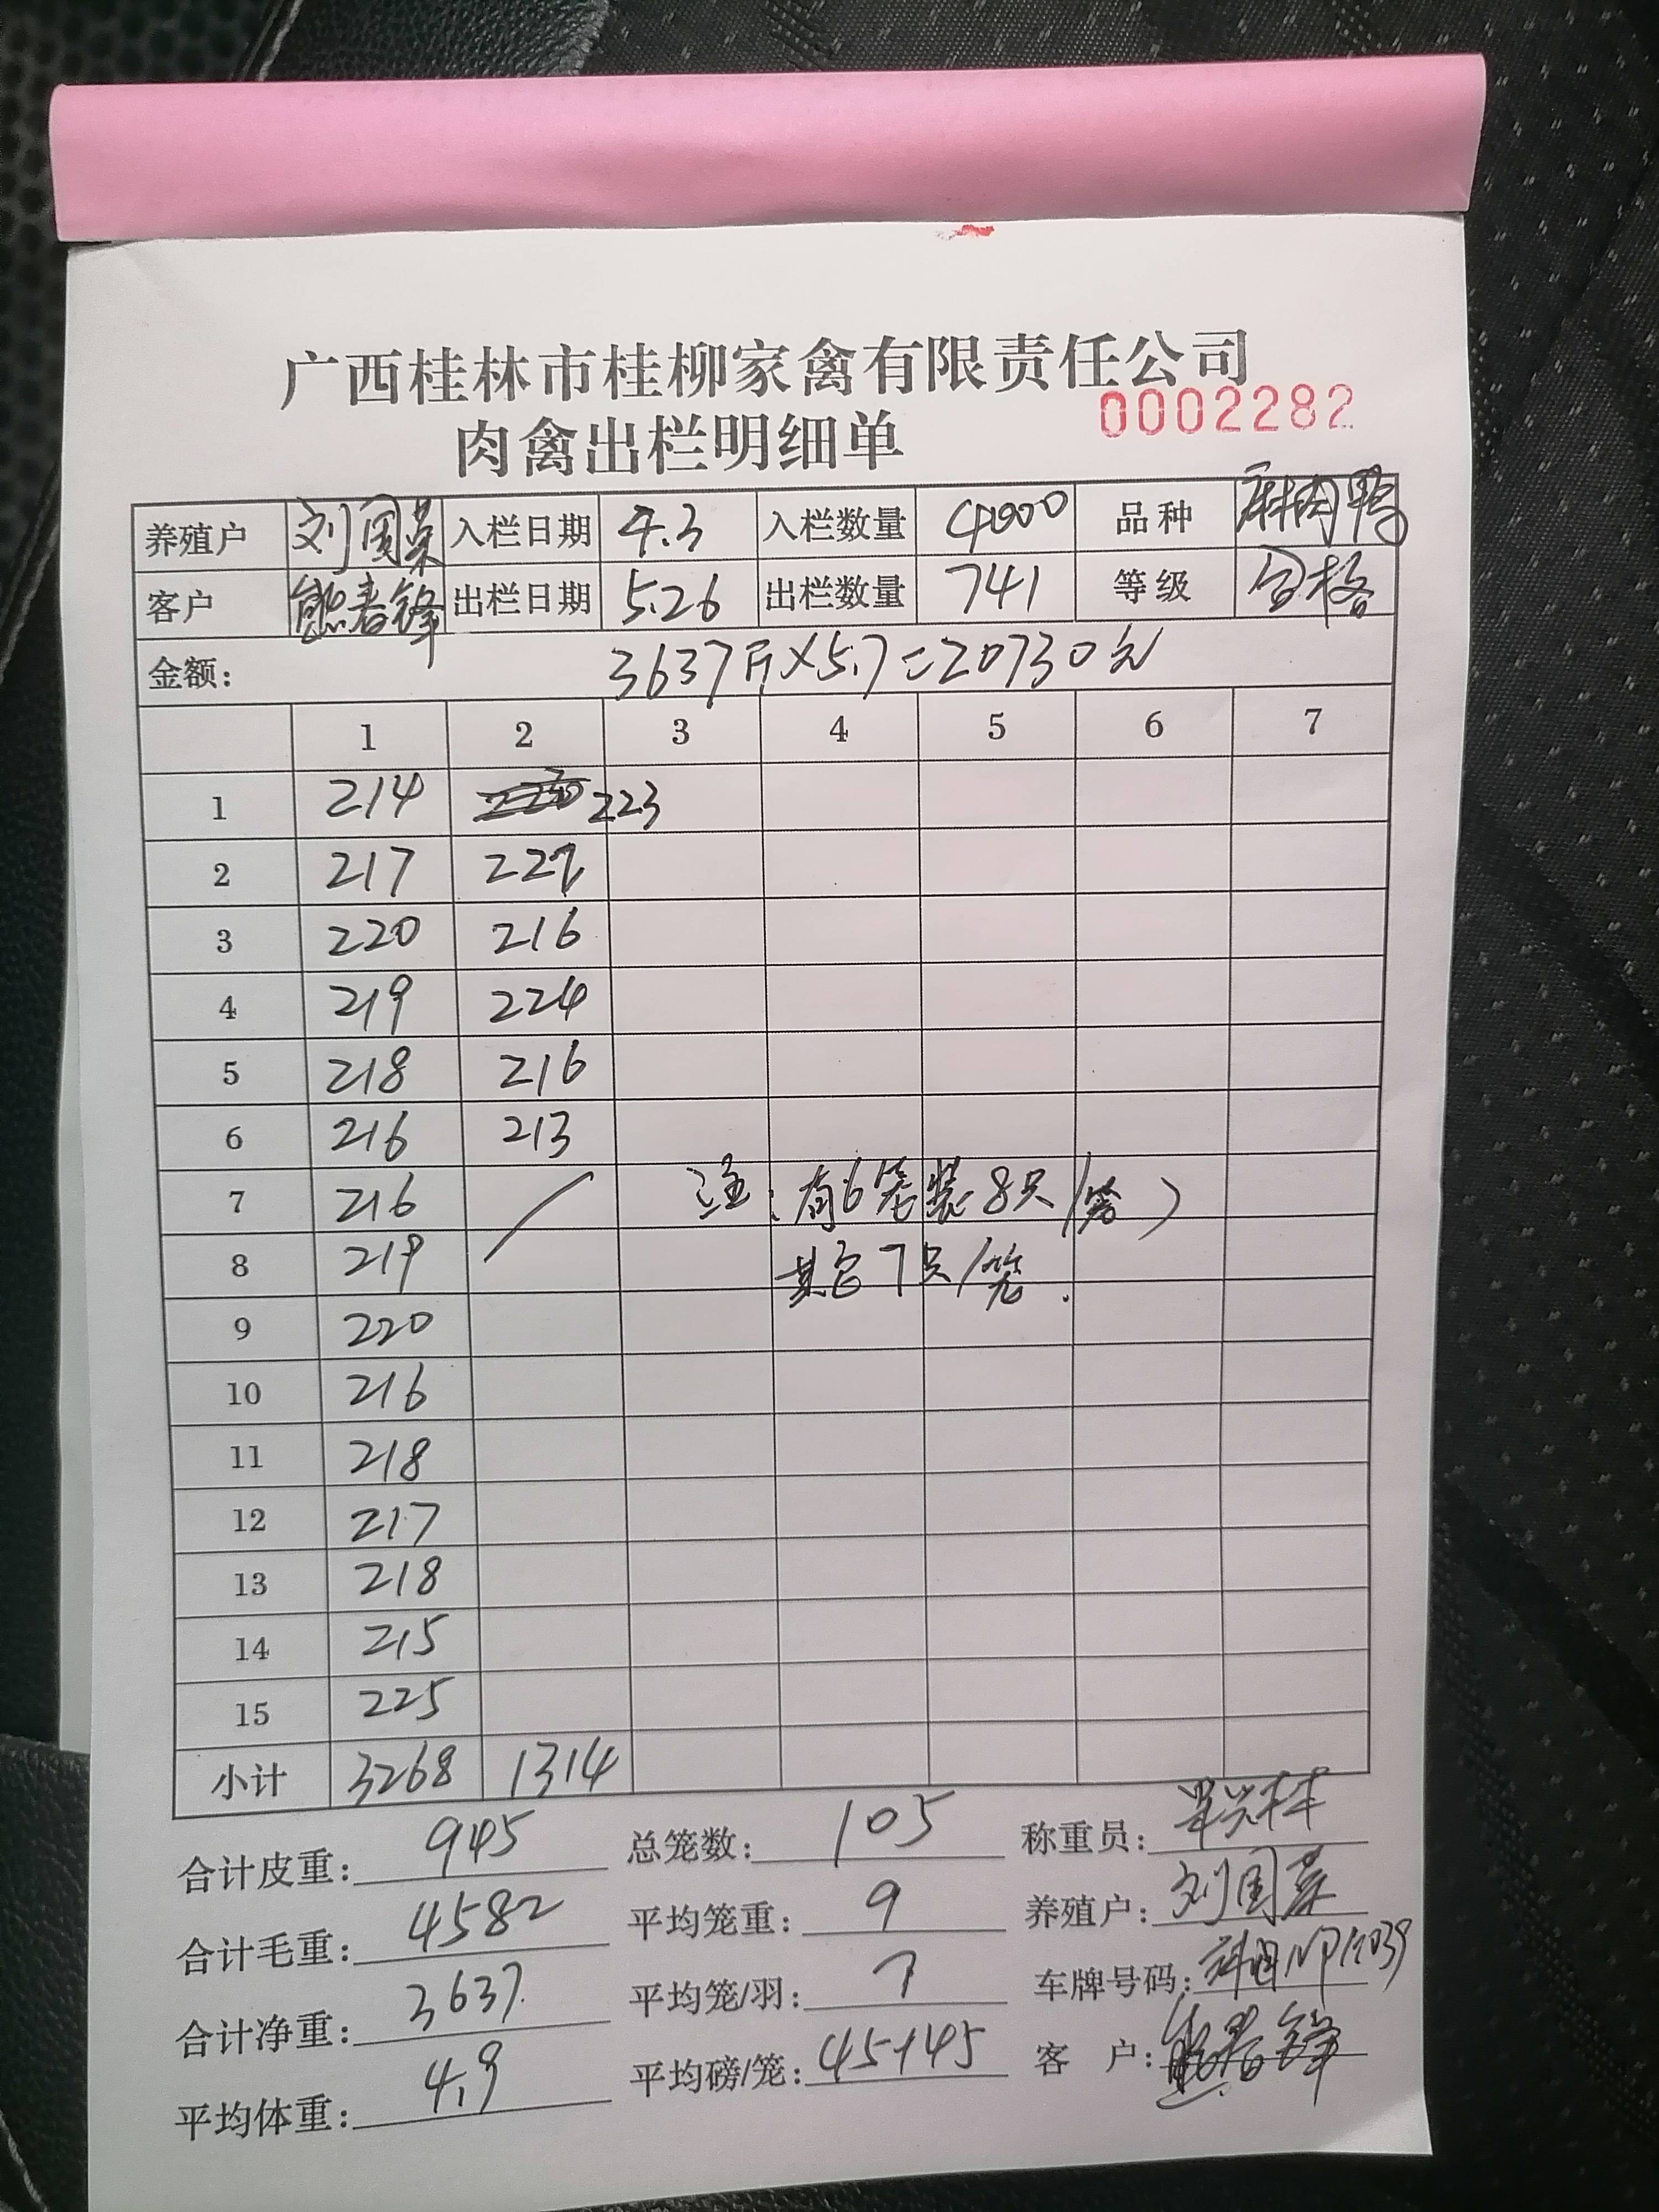 广西桂林市桂柳家禽有限责任公司
肉禽出栏明细单 0002282
养殖户 刘国荣 入栏日期 4.3 入栏数量 4000 品种 麻肉鸭
客户 熊春锋 出栏日期 5.26 出栏数量 741 等级 合格
金额: 3637斤×5.7=20730元
1 2 3 4 5 6 7
1 214 223
2 217 222
3 220 216
4 219 224
5 218 216
6 216 213
7 216 注:有6笼装8只/笼)
8 219 其它7只/笼.
9 220
10 216
11 218
12 217
13 218
14 215
15 225
小计 3268 1314
合计皮重: 945 总笼数: 105 称重员:
合计毛重: 4582 平均笼重: 9 养殖户: 刘国荣
合计净重: 3637 平均笼/羽: 7 车牌号码:
平均体重: 4.9 平均磅/笼: 客 户: 熊春锋